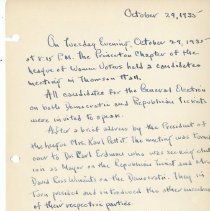 October 29, 1935
On Tuesday Evening, October 29, 1935
at 8:15 P.M. The Princeton Chapter of the
League of Women Voters held a candidates
meeting in Thomson Hall.
All candidates for the General Election
on both Democratic and Republican Tickets
were invited to speak.
After a brief address by the President of
the League Mrs. the meeting was turned
over to Dr. Karl Erdman who was seeking
as Mayor on the Republican Ticket and Mrs.
David on the Democratic. They in
turn presented and introduced the other members
of their respective parties.